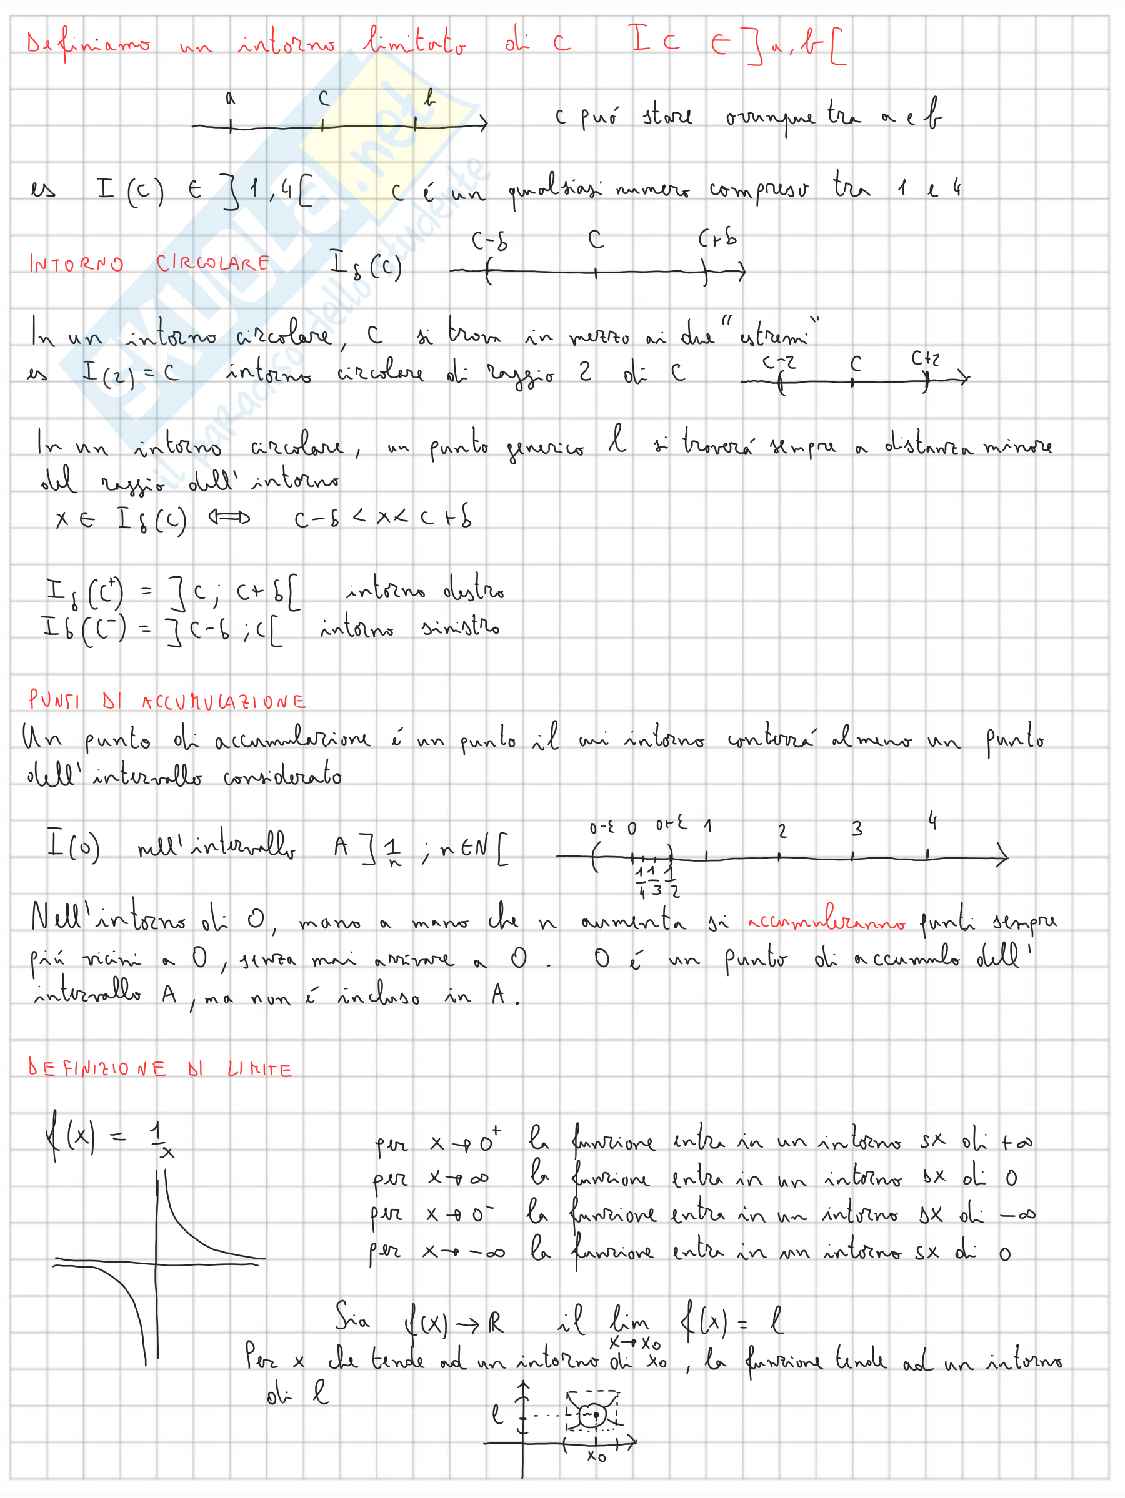 Definiamo un intorno limitato di c   I c ∈ ]a,b[
a   c   b
c puó stare ovunque tra a e b
es   I(c) ∈ ]1,4[   c é un qualsiasi numero compreso tra 1 e 4
INTORNO CIRCOLARE   Iδ(c)   c-δ   c   c+δ
In un intorno circolare, c si trova in mezzo ai due "estremi"
es   I(2)=c   intorno circolare di raggio 2 di c   c-2   c   c+2
In un intorno circolare, un punto generico l si troverá sempre a distanza minore
del raggio dell'intorno
x ∈ Iδ(c) ⟺ c-δ < x < c+δ
Iδ(c⁺) = ]c; c+δ[   intorno destro
Iδ(c⁻) = ]c-δ; c[   intorno sinistro
PUNTI DI ACCUMULAZIONE
Un punto di accumulazione é un punto il cui intorno conterrá almeno un punto
dell'intervallo considerato
I(0) nell'intervallo A ]1/n ; n∈N[   0-ε   0   0+ε   1   2   3   4
1/4   1/3   1/2
Nell'intorno di 0, mano a mano che n aumenta si accumuleranno punti sempre
piú vicini a 0, senza mai arrivare a 0. 0 é un punto di accumulo dell'
intervallo A, ma non é incluso in A.
DEFINIZIONE DI LIMITE
f(x) = 1/x
per x→0⁺ la funzione entra in un intorno sx di +∞
per x→∞ la funzione entra in un intorno dx di 0
per x→0⁻ la funzione entra in un intorno dx di -∞
per x→-∞ la funzione entra in un intorno sx di 0
Sia f(x)→R il lim x→x₀ f(x) = l
Per x che tende ad un intorno di x₀, la funzione tende ad un intorno
di l
l
x₀
SKUOLA.net
il paradiso dello studente